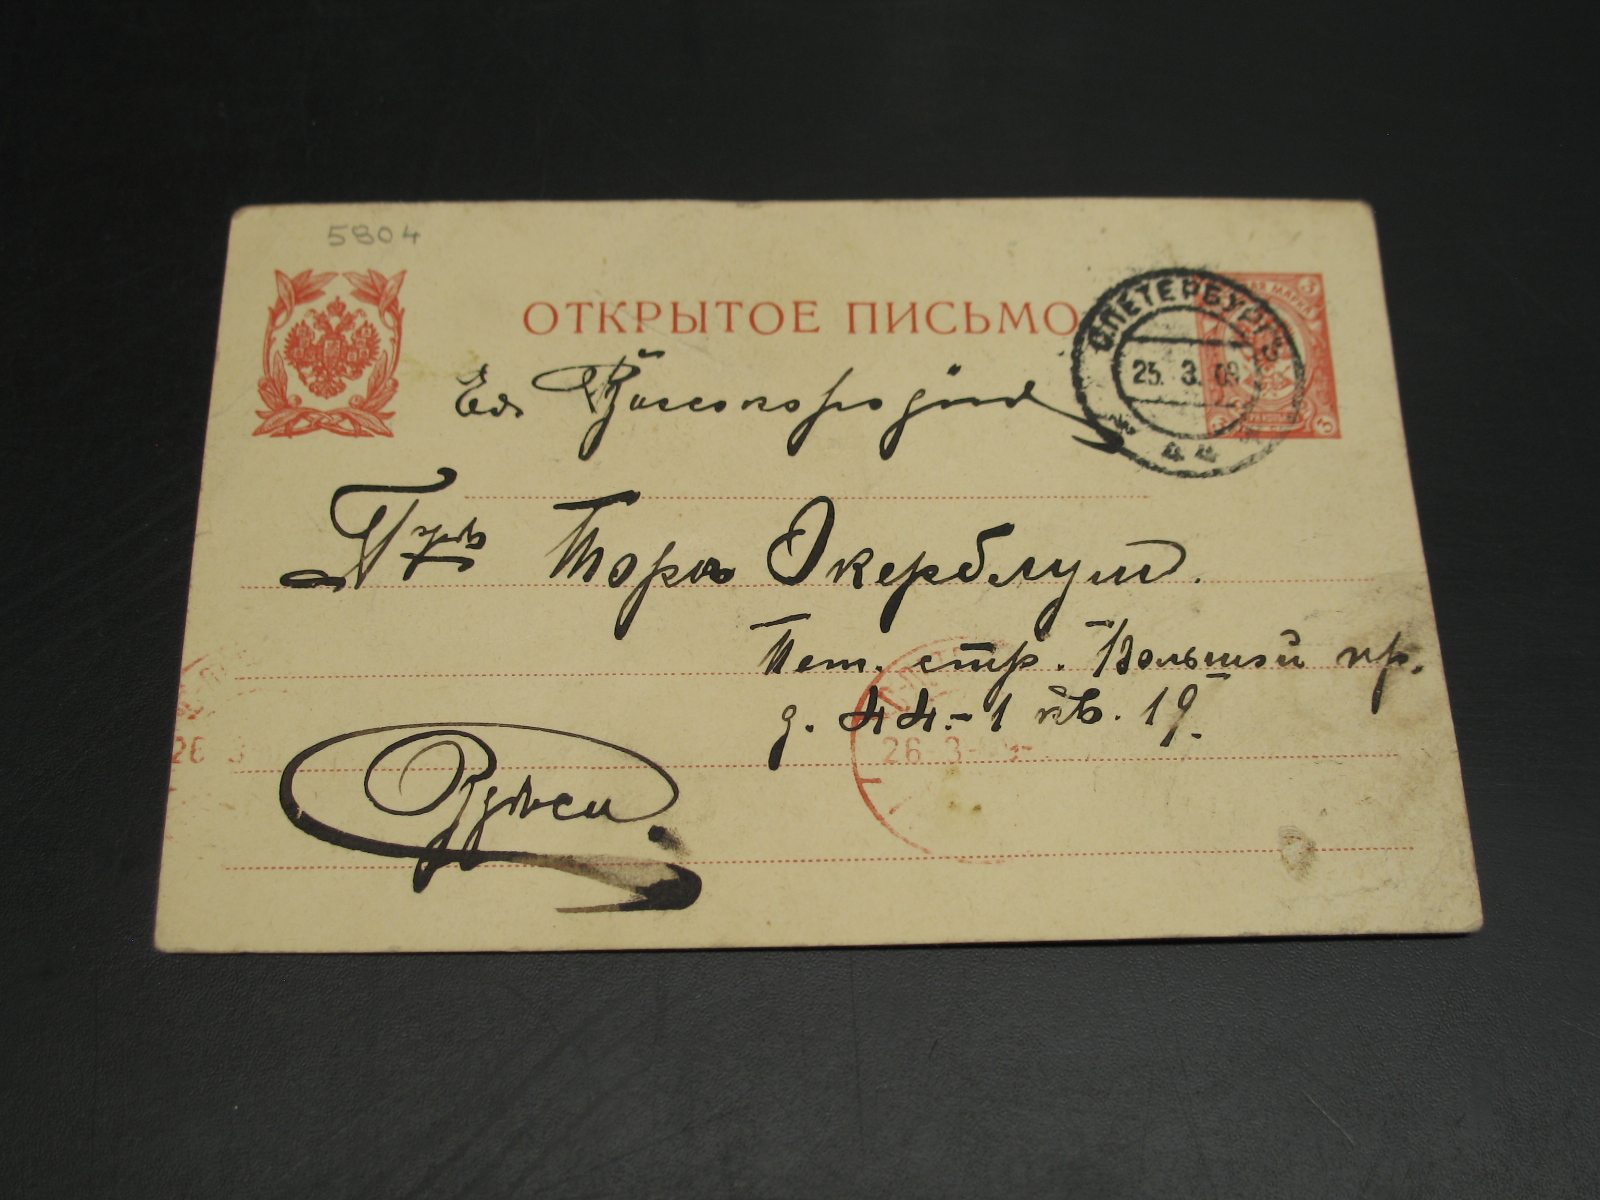 5804
ОТКРЫТОЕ ПИСЬМО
С.ПЕТЕРБУРГЪ
25. 3. 09
3
3
3
Ея Высокородію
Торъ Экерблум.
Пет. стр. Большой пр.
д. 44-1 кв. 19.
26 3
26 3
Здѣсь.